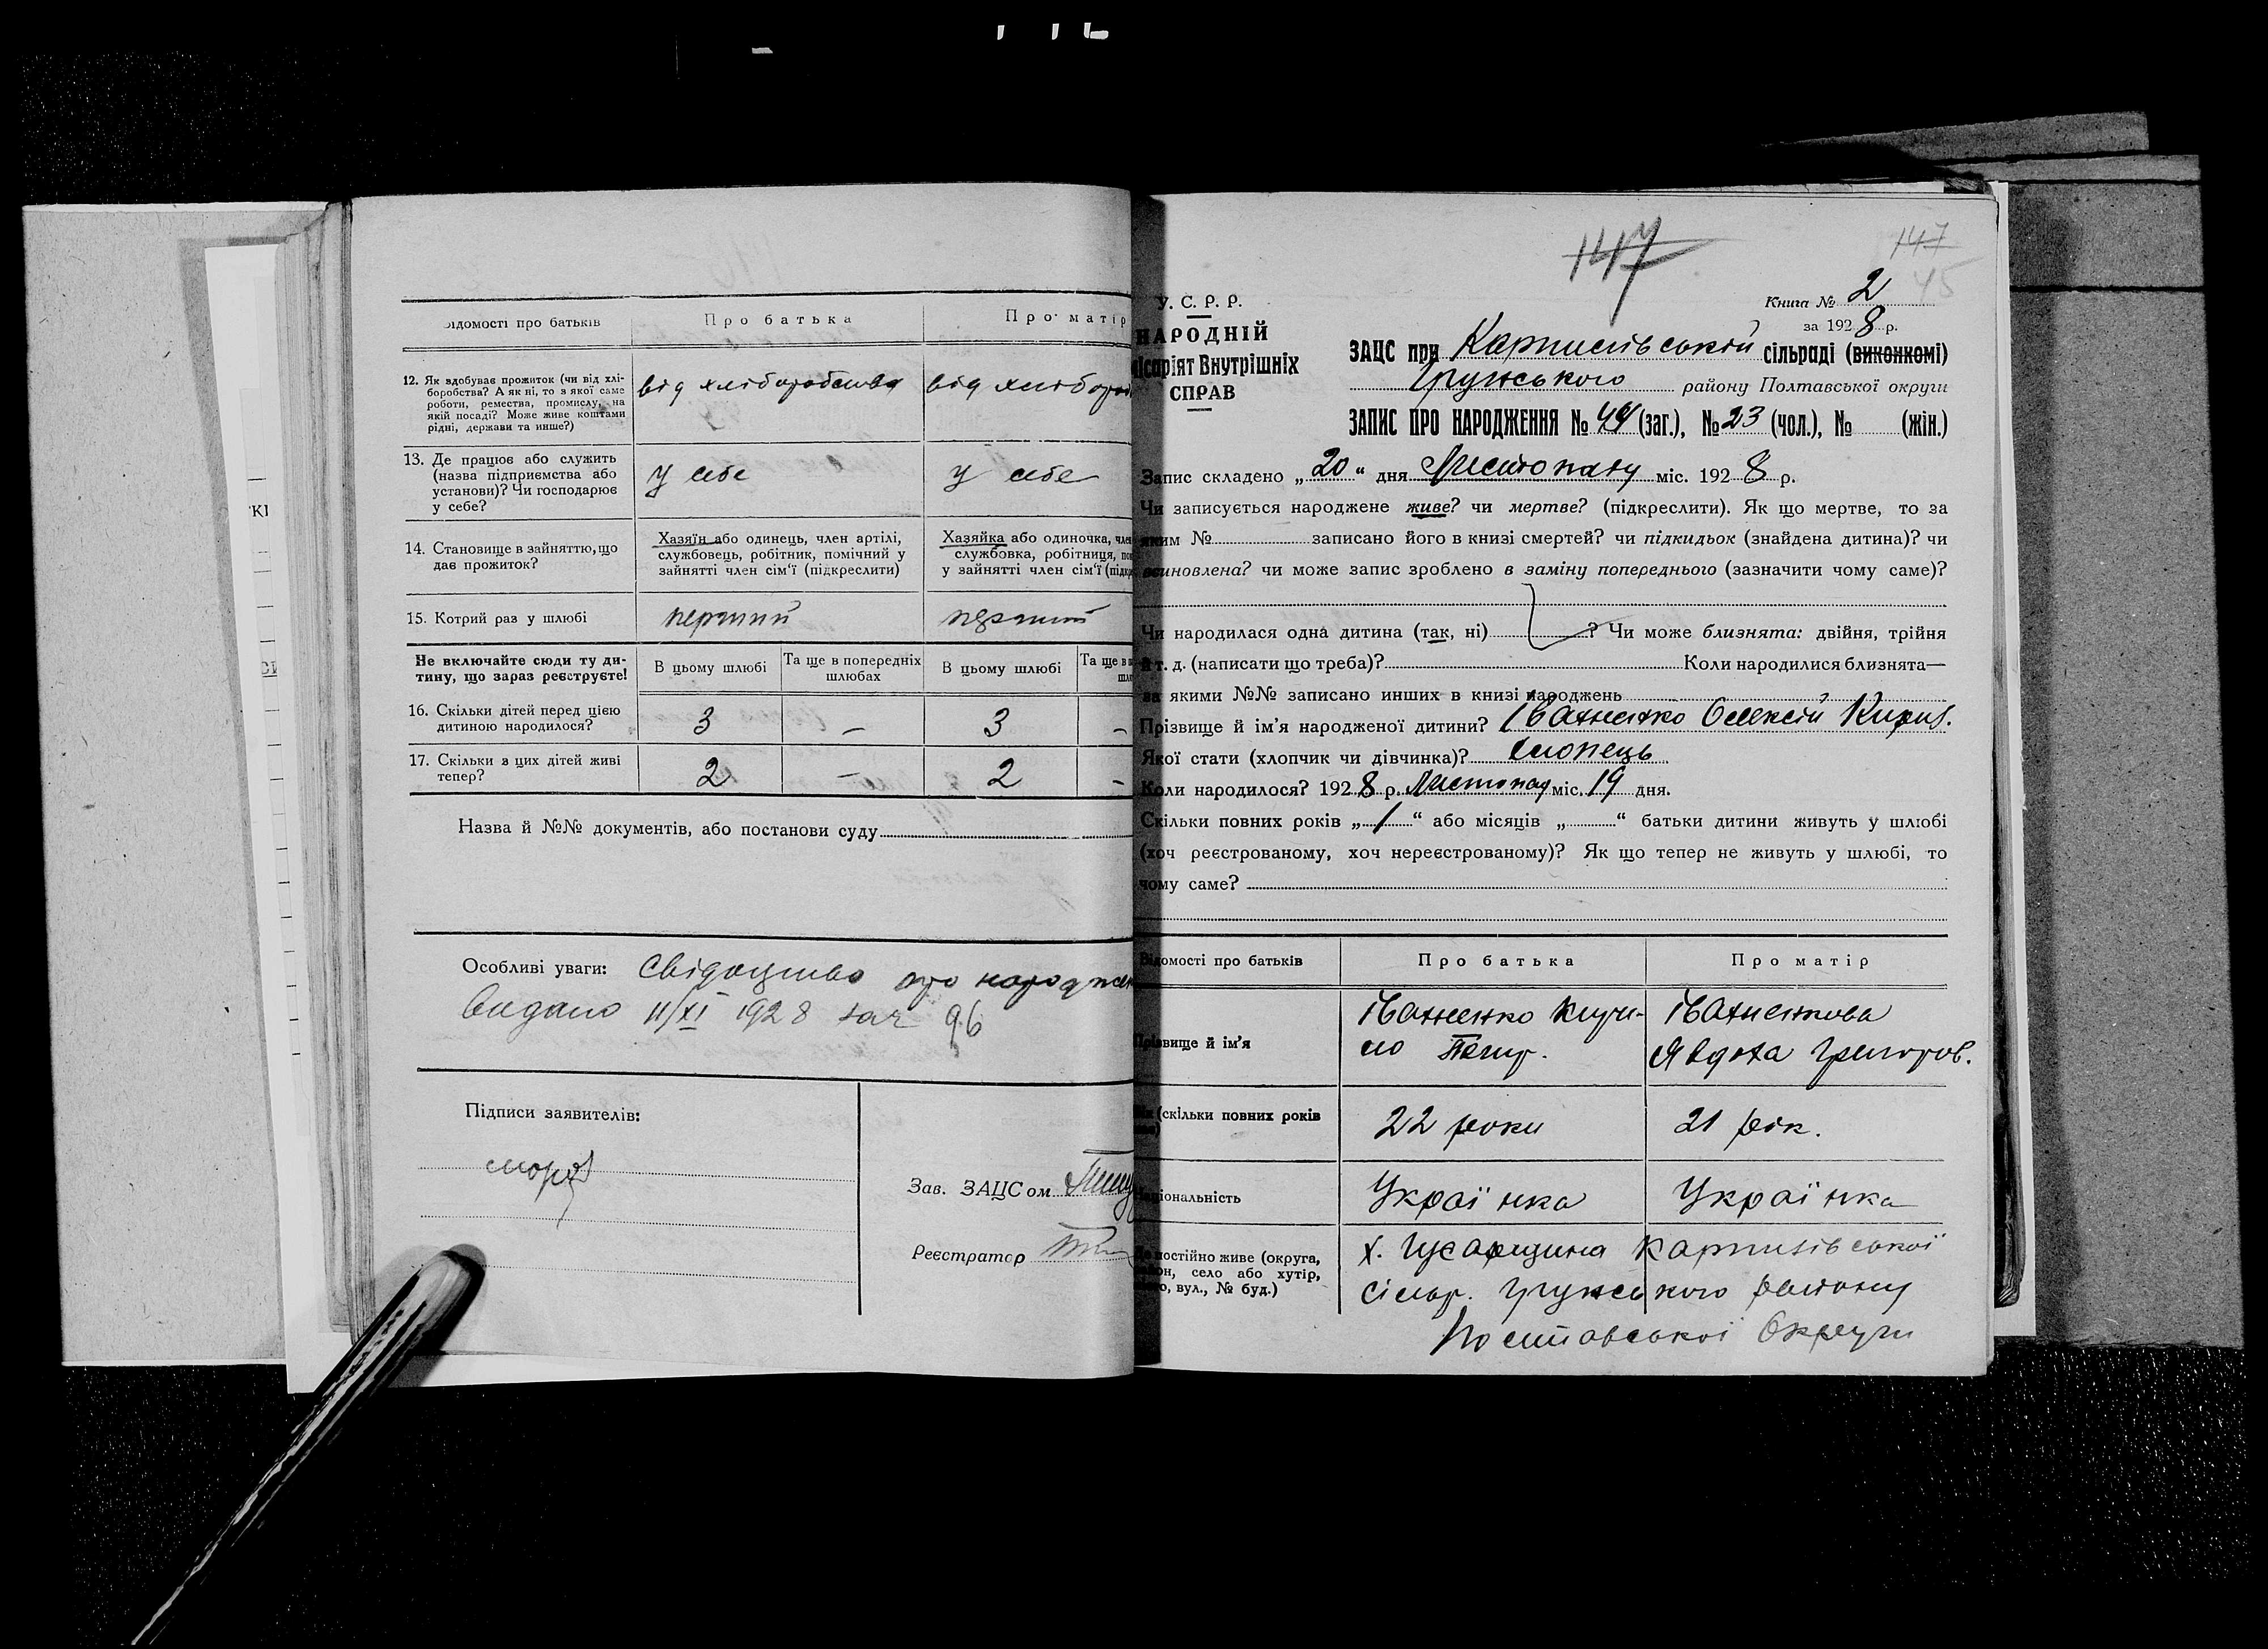 Відомості про батьків
Про батька
Про матір
12. Як здобуває прожиток (чи від хлі-
боробства? А як ні, то з якої саме
роботи, ремества, промислу, на
якій посаді? Може живе коштами
рідні, держави та инше?)
від хліборобства
від хлібороб
13. Де працює або служить
(назва підприємства або
установи)? Чи господарює
у себе?
у себе
у себе
14. Становище в зайняттю, що
дає прожиток?
Хазяїн або одинець, член артілі,
службовець, робітник, помічний у
зайнятті член сім'ї (підкреслити)
Хазяйка або одиночка, член
службовка, робітниця, по
у зайнятті член сім'ї (підкр
15. Котрий раз у шлюбі
перший
перший
Не включайте сюди ту ди-
тину, що зараз реєструєте!
В цьому шлюбі
Та ще в попередніх
шлюбах
В цьому шлюбі
Та ще в п
шлю
16. Скільки дітей перед цією
дитиною народилося?
3 — 3 —
17. Скільки з цих дітей живі
тепер?
2 — 2 —
Назва й №№ документів, або постанови суду
Особливі уваги: Свідоцтво про народжен
Видано 11/XI 1928 за № 96
Підписи заявителів:
Зав. ЗАЦСом
Реєстратор
147
147
45
У. С. Р. Р.
НАРОДНІЙ
ісаріят Внутрішніх
СПРАВ
Книга № 2
за 1928 р.
ЗАЦС при Карпилівській сільраді (виконкомі)
Грунського району Полтавської округи
ЗАПИС ПРО НАРОДЖЕННЯ № 44 (заг.), № 23 (чол.), № (жін.)
Запис складено „20“ дня Листопаду міс. 1928 р.
Чи записується народжене живе? чи мертве? (підкреслити). Як що мертве, то за
яким № записано його в книзі смертей? чи підкидьок (знайдена дитина)? чи
всиновлена? чи може запис зроблено в заміну попереднього (зазначити чому саме)?
Чи народилася одна дитина (так, ні) ? Чи може близнята: двійня, трійня
й т. д. (написати що треба)? Коли народилися близнята—
за якими №№ записано инших в книзі народжень
Прізвище й ім'я народженої дитини? Іваненко Олексій Кирил.
Якої стати (хлопчик чи дівчинка)? хлопець
Коли народилося? 1928 р. Листопад міс. 19 дня.
Скільки повних років „1“ або місяців „ “ батьки дитини живуть у шлюбі
(хоч реєстрованому, хоч нереєстрованому)? Як що тепер не живуть у шлюбі, то
чому саме?
Відомості про батьків
Про батька
Про матір
Прізвище й ім'я
Іваненко Кири-
ло Петр.
Іваненкова
Явдоха Григоров.
Вік (скільки повних років
22 роки
21 рік.
Національність
Українка
Українка
Де постійно живе (округа,
район, село або хутір,
місто, вул., № буд.)
х. Гусарщина Карпилівської
Сільр. Грунського району
Полтавської Округи